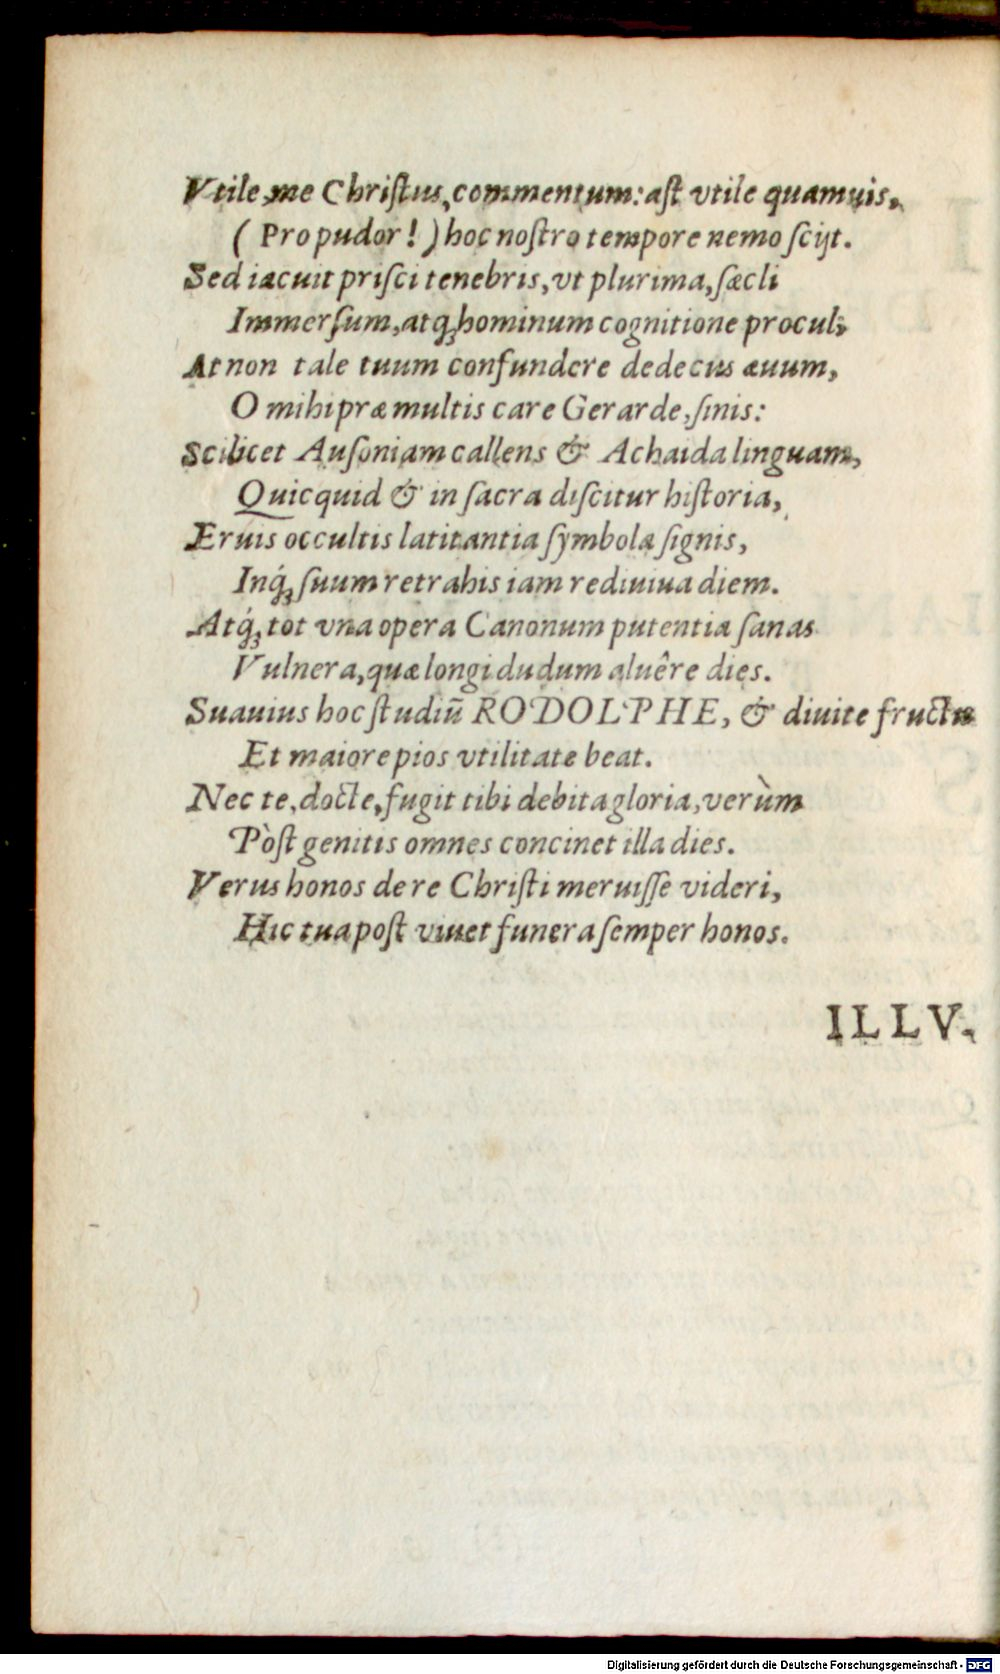 Vtile, me Chriſtus, commentum: aſt vtile quamuis,
( Pro pudor! ) hoc noſtro tempore nemo ſcijt.
Sed iacuit priſci tenebris, vt plurima, ſæcli
Immerſum, atq́ꝫ hominum cognitione procul;
At non tale tuum confundere dedecus æuum,
O mihi præ multis care Gerarde, ſinis:
Scilicet Auſoniam callens & Achaida linguam,
Quicquid & in ſacra diſcitur hiſtoria,
Eruis occultis latitantia ſymbola ſignis,
Inq́ꝫ ſuum retrahis iam rediuiua diem.
Atq́ꝫ tot vna opera Canonum putentia ſanas
Vulnera, quæ longi dudum aluêre dies.
Suauius hoc ſtudiũ RODOLPHE, & diuite fructu
Et maiore pios vtilitate beat.
Nec te, docte, fugit tibi debita gloria, verùm
Pòſt genitis omnes concinet illa dies.
Verus honos de re Chriſti meruiſſe videri,
Hic tua poſt viuet funera ſemper honos.
ILLV.
Digitalisierung gefördert durch die Deutsche Forschungsgemeinschaft - DFG